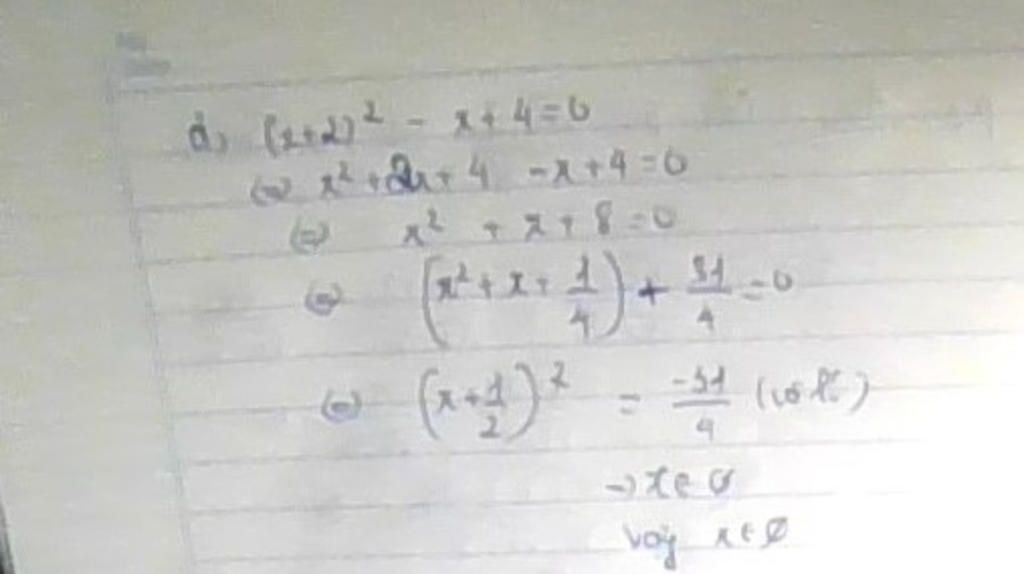 d, (x+2)² - x + 4 = 0
⇔ x² + 2x + 4 - x + 4 = 0
⇔ x² + x + 8 = 0
⇔ (x² + x + 1/4) + 31/4 = 0
⇔ (x + 1/2)² = -31/4 (vô lí)
→ x ∈ ∅
vậy x ∈ ∅